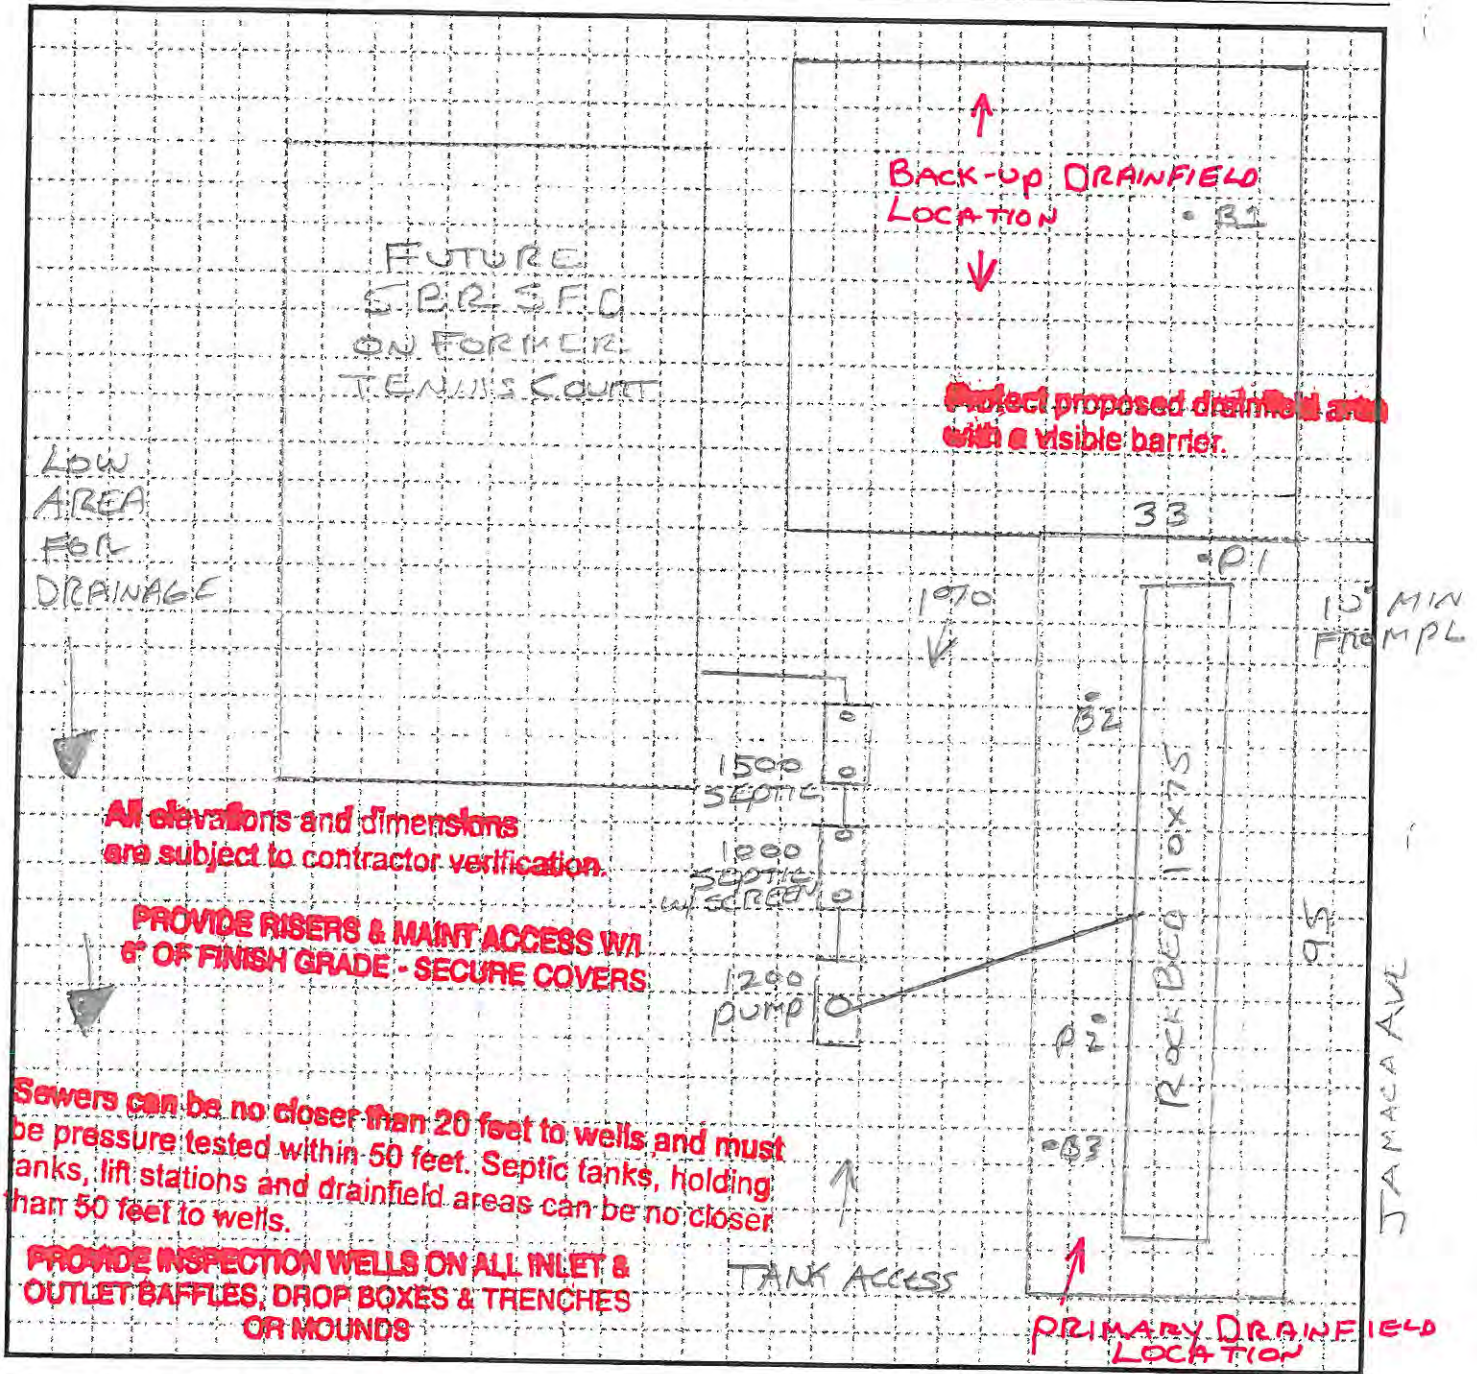 BACK-UP DRAINFIELD
LOCATION
• B1
FUTURE
ON FORMER
TENNIS COURT
Protect proposed drainfield area
with a visible barrier.
LOW
AREA
FOR
DRAINAGE
33
•P1
1%
10' MIN
FROM PL
B2
1500
SEPTIC
1000
SEPTIC
W/ SCREEN
1200
PUMP
ROCK BED 10x75
95
JAMACA AVE
All elevations and dimensions
are subject to contractor verification.
PROVIDE RISERS & MAINT ACCESS W/I
6" OF FINISH GRADE - SECURE COVERS
P2
•B3
Sewers can be no closer than 20 feet to wells and must
be pressure tested within 50 feet. Septic tanks, holding
tanks, lift stations and drainfield areas can be no closer
than 50 feet to wells.
PROVIDE INSPECTION WELLS ON ALL INLET &
OUTLET BAFFLES, DROP BOXES & TRENCHES
OR MOUNDS
TANK ACCESS
PRIMARY DRAINFIELD
LOCATION